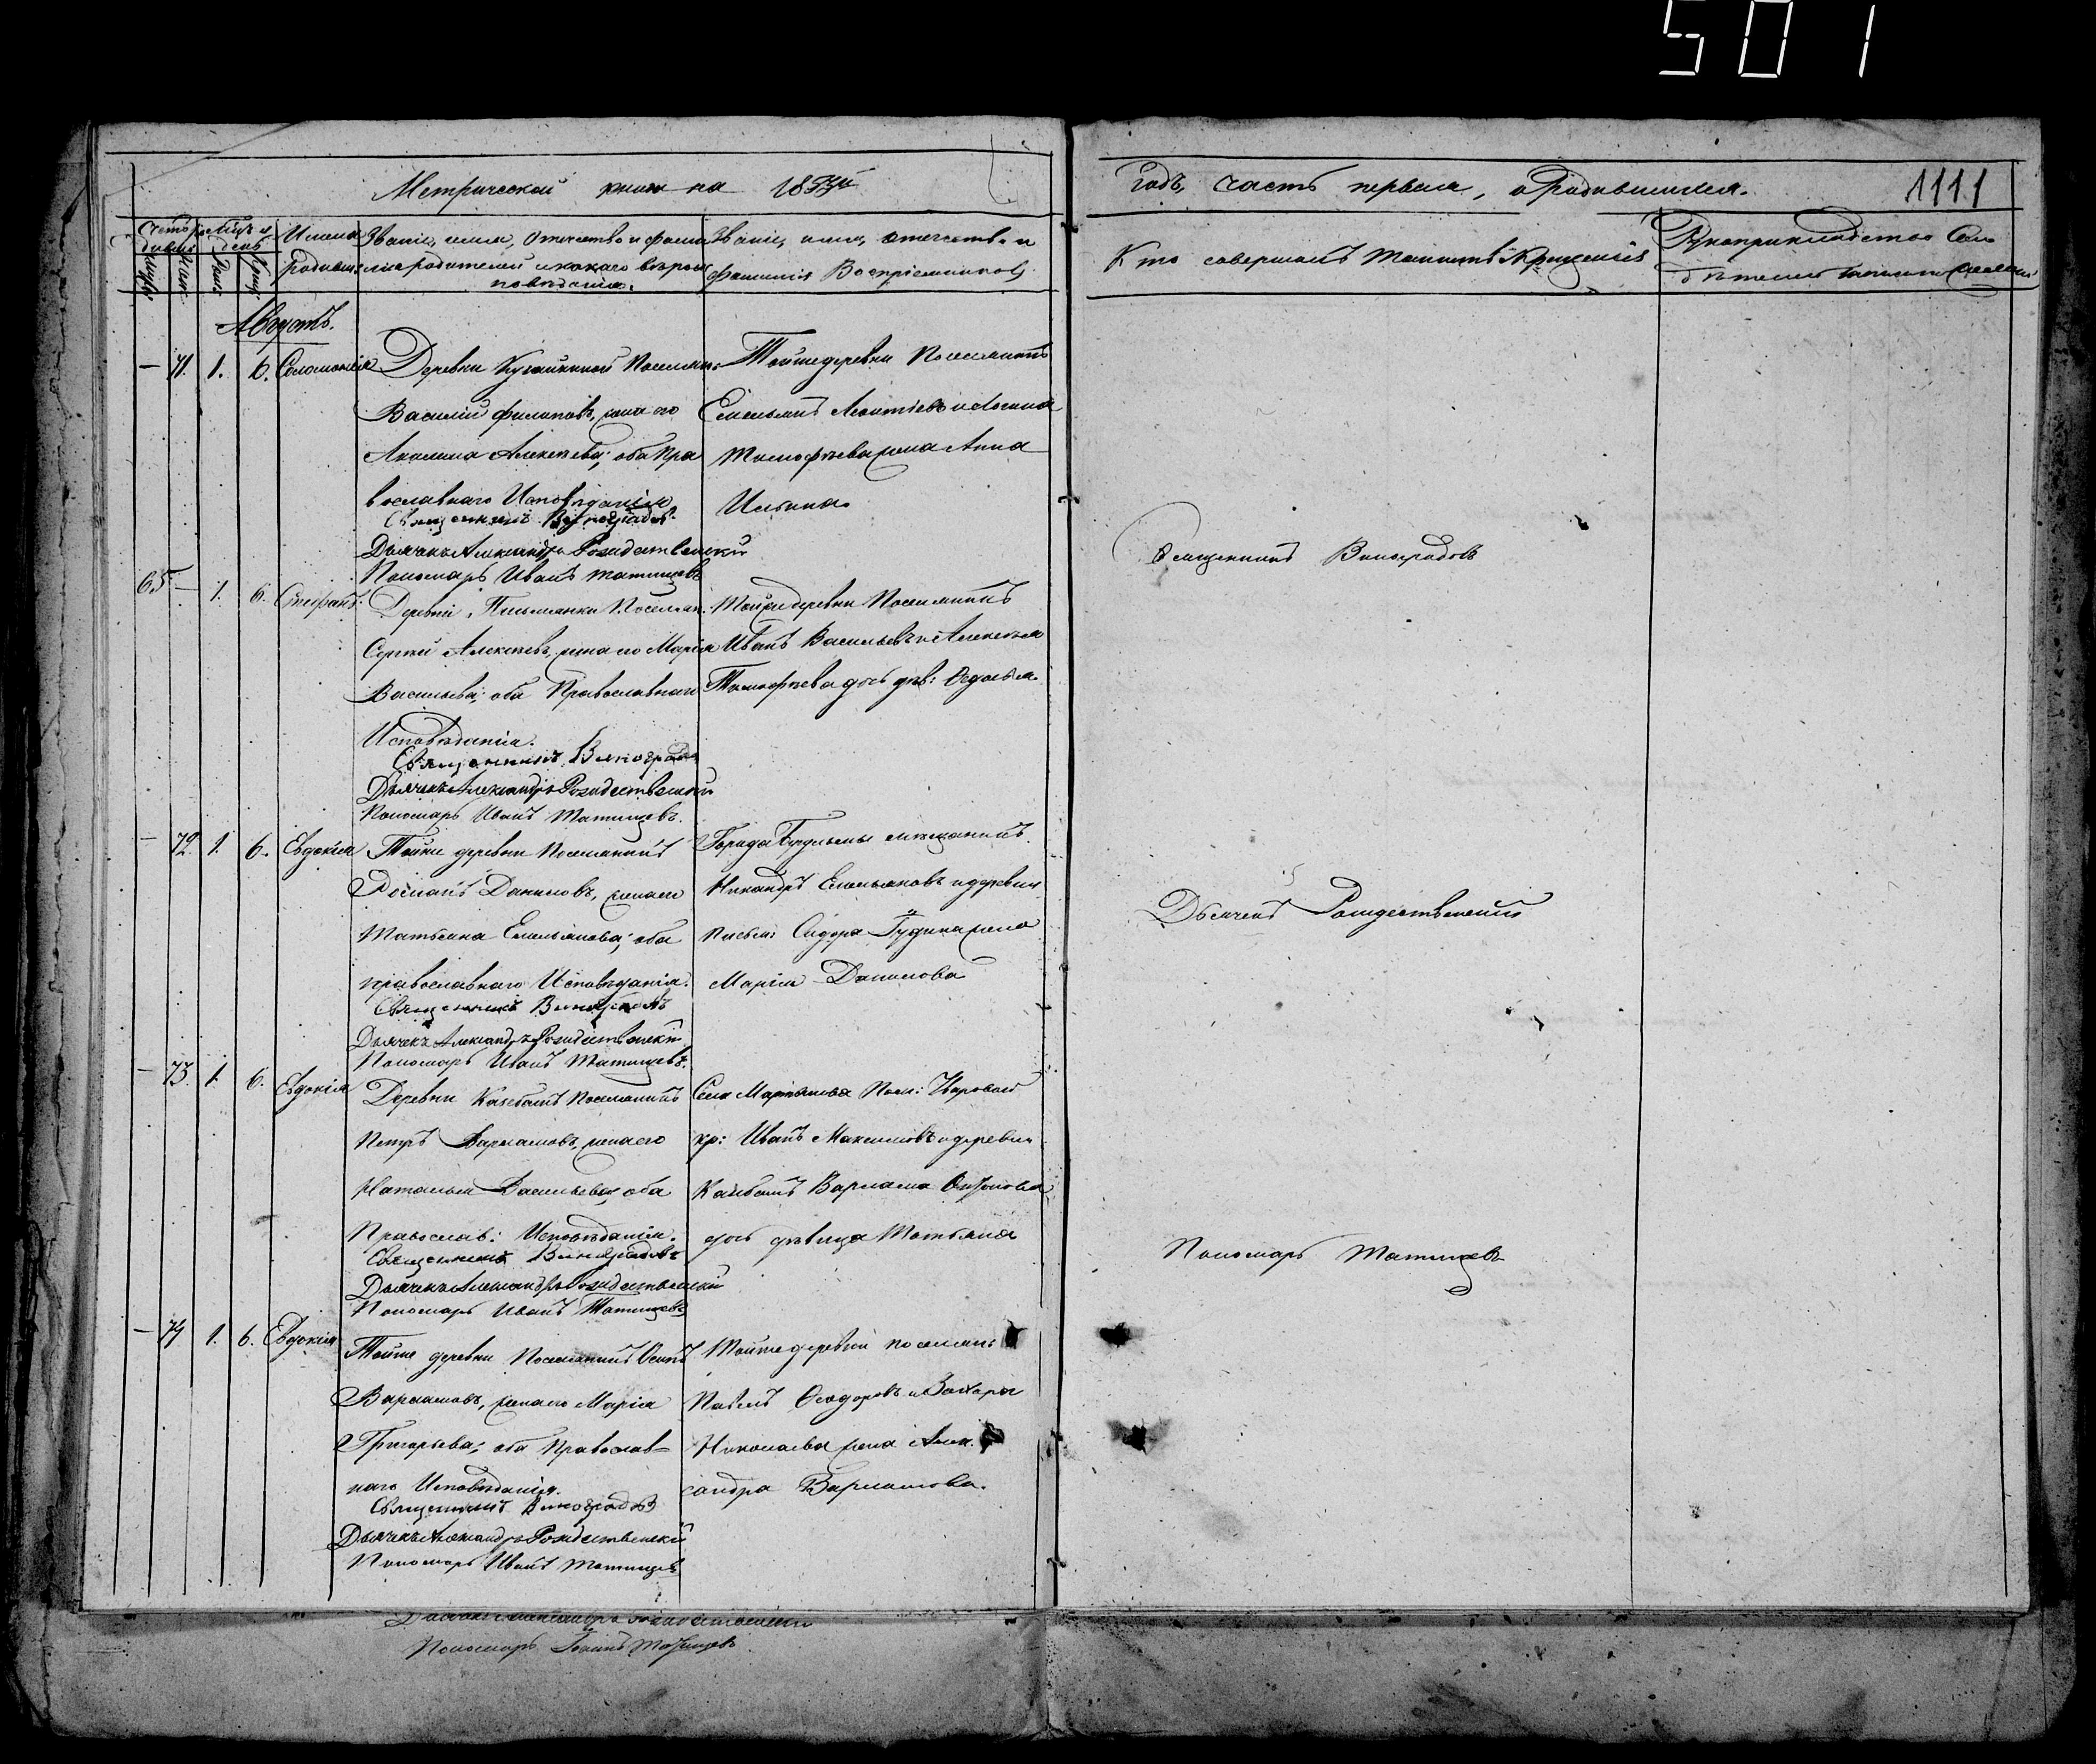 501
Метрической книги на 1857й
Годъ, часть первая, о Родившихся.
1111
Счетъ родив
Мѣсяцъ и день
Имена Родивш
Званіе, имя, отчество и фами
лія родителей и какого вѣроис
повѣданія.
Званіе, имя, отчество и
фамилія Воспріемниковъ
Кто совершалъ таинство Крещенія
Рукоприкладство
Августъ.
— 71. 1. 6. Соломонія
Деревни Поселян:
Василій Филиповъ, жена его
Акилина Алексѣева; оба Пра
вославнаго Исповѣданія
Священникъ Виноградовъ.
Дьячекъ Александръ Рождественскій
Пономарь Иванъ Татищевъ
Тойже деревни Поселянинъ
Емельянъ Леонтіевъ и
Тимофѣева жена Анна
Ильина.
65 — 1. 6.
Деревни Письмянки Поселян.
Сергѣй Алексѣевъ, жена его Марія
Васильева; оба Православнаго
Исповѣданія.
Священникъ Виноградовъ
Дьячекъ Александръ Рождественскій
Пономарь Иванъ Татищевъ
Тойже деревни Поселянинъ
Иванъ Васильевъ и Алексѣя
Тимофѣева дочь дѣв: Ѳедосья
— 72. 1. 6. Евдокія
Тойже деревни Поселянинъ
Романъ Даниловъ, жена его
Татьяна Емельянова; оба
православнаго Исповѣданія.
Священникъ Виноградовъ
Дьячекъ Александръ Рождественскій
Пономарь Иванъ Татищевъ.
Города Бугульмы мѣщанинъ
Никандръ Емельяновъ и деревни
Письм: Сидора Гудина жена
Марія Данилова
— 73. 1. 6. Евдокія
Деревни Поселянинъ
Петръ Варламовъ, жена его
Наталья Васильева, оба
Православ: Исповѣданія.
Священникъ Виноградовъ
Дьячекъ Александръ Рождественскій
Пономарь Иванъ Татищевъ
Села Мартынова Пом:
кр: Иванъ Максимовъ и деревни
Варлама
дочь дѣвица Татьяна
— 74 1. 6. Евдокія
Тойже деревни Поселянинъ Осипъ
Варламовъ, жена его Марія
Григорьева; оба Православ-
наго Исповѣданія.
Священникъ Виноградовъ
Дьячекъ Александръ Рождественскій
Пономарь Иванъ Татищевъ
Тойже деревни поселян:
Павелъ Ѳеодоровъ и Захара
Николаева жена Алек
сандра Варламова.
Священникъ Виноградовъ
Дьячекъ Рождественскій
Пономарь Татищевъ
Дьячекъ Александръ Рождественскій
Пономарь Иванъ Татищевъ